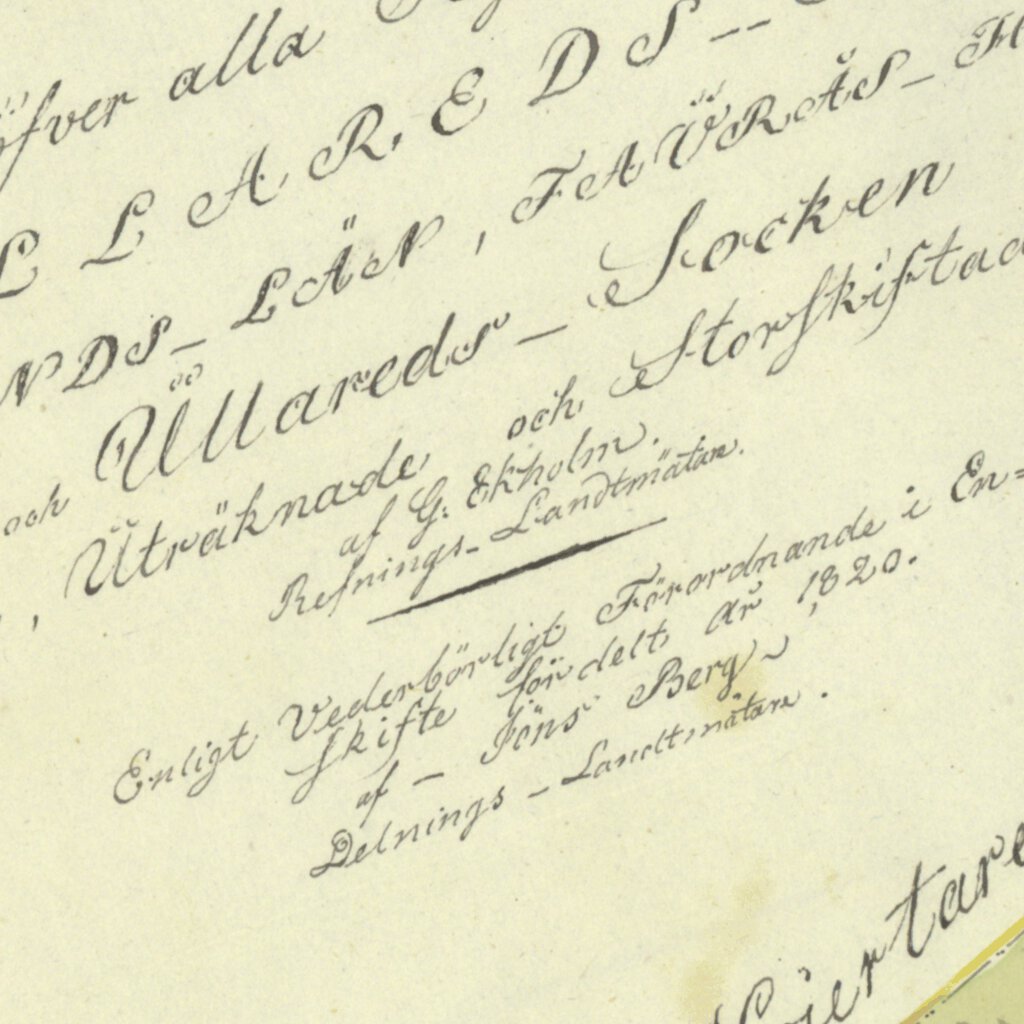 öfver alla
L L A R E D S _
NDS_ LÄN, FAURÅS_ H
och Ullareds _ Socken
, Uträknade och Storskiftad
af G: Ekholm.
Refnings_ Landtmätare.
Enligt Vederbörligt Förordnande i En=
skifte fördelt år 1820.
af _ Jöns Berg ~
Delnings _ Landtmätare .